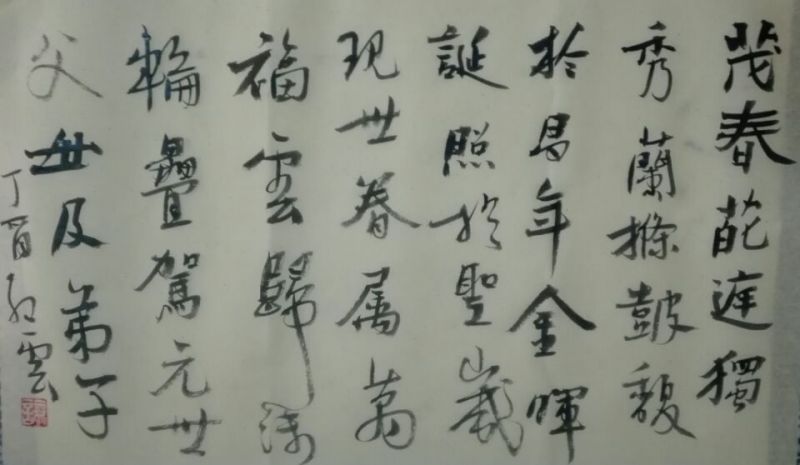 茂春葩庭獨
秀蘭搽鼓馥
於昌年金暉
誕照於聖歲
現世眷属萬
福雲歸
輪疊駕元世
父母及弟子
丁酉 雲